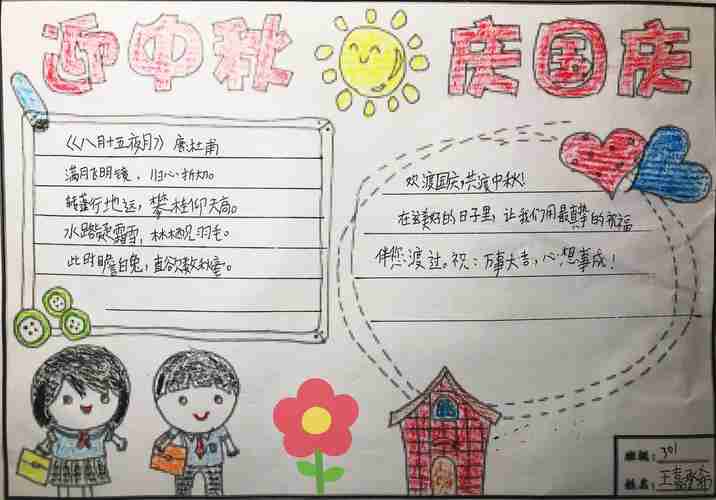 迎中秋 庆国庆
《八月十五夜月》唐杜甫
满月飞明镜，归心折大刀。
转蓬行地远，攀桂仰天高。
水路疑霜雪，林栖见羽毛。
此时瞻白兔，直欲数秋毫。
欢渡国庆，共渡中秋！
在这美好的日子里，让我们用最真挚的祝福
伴您渡过。祝：万事大吉，心想事成！
班级：301
姓名：王嘉